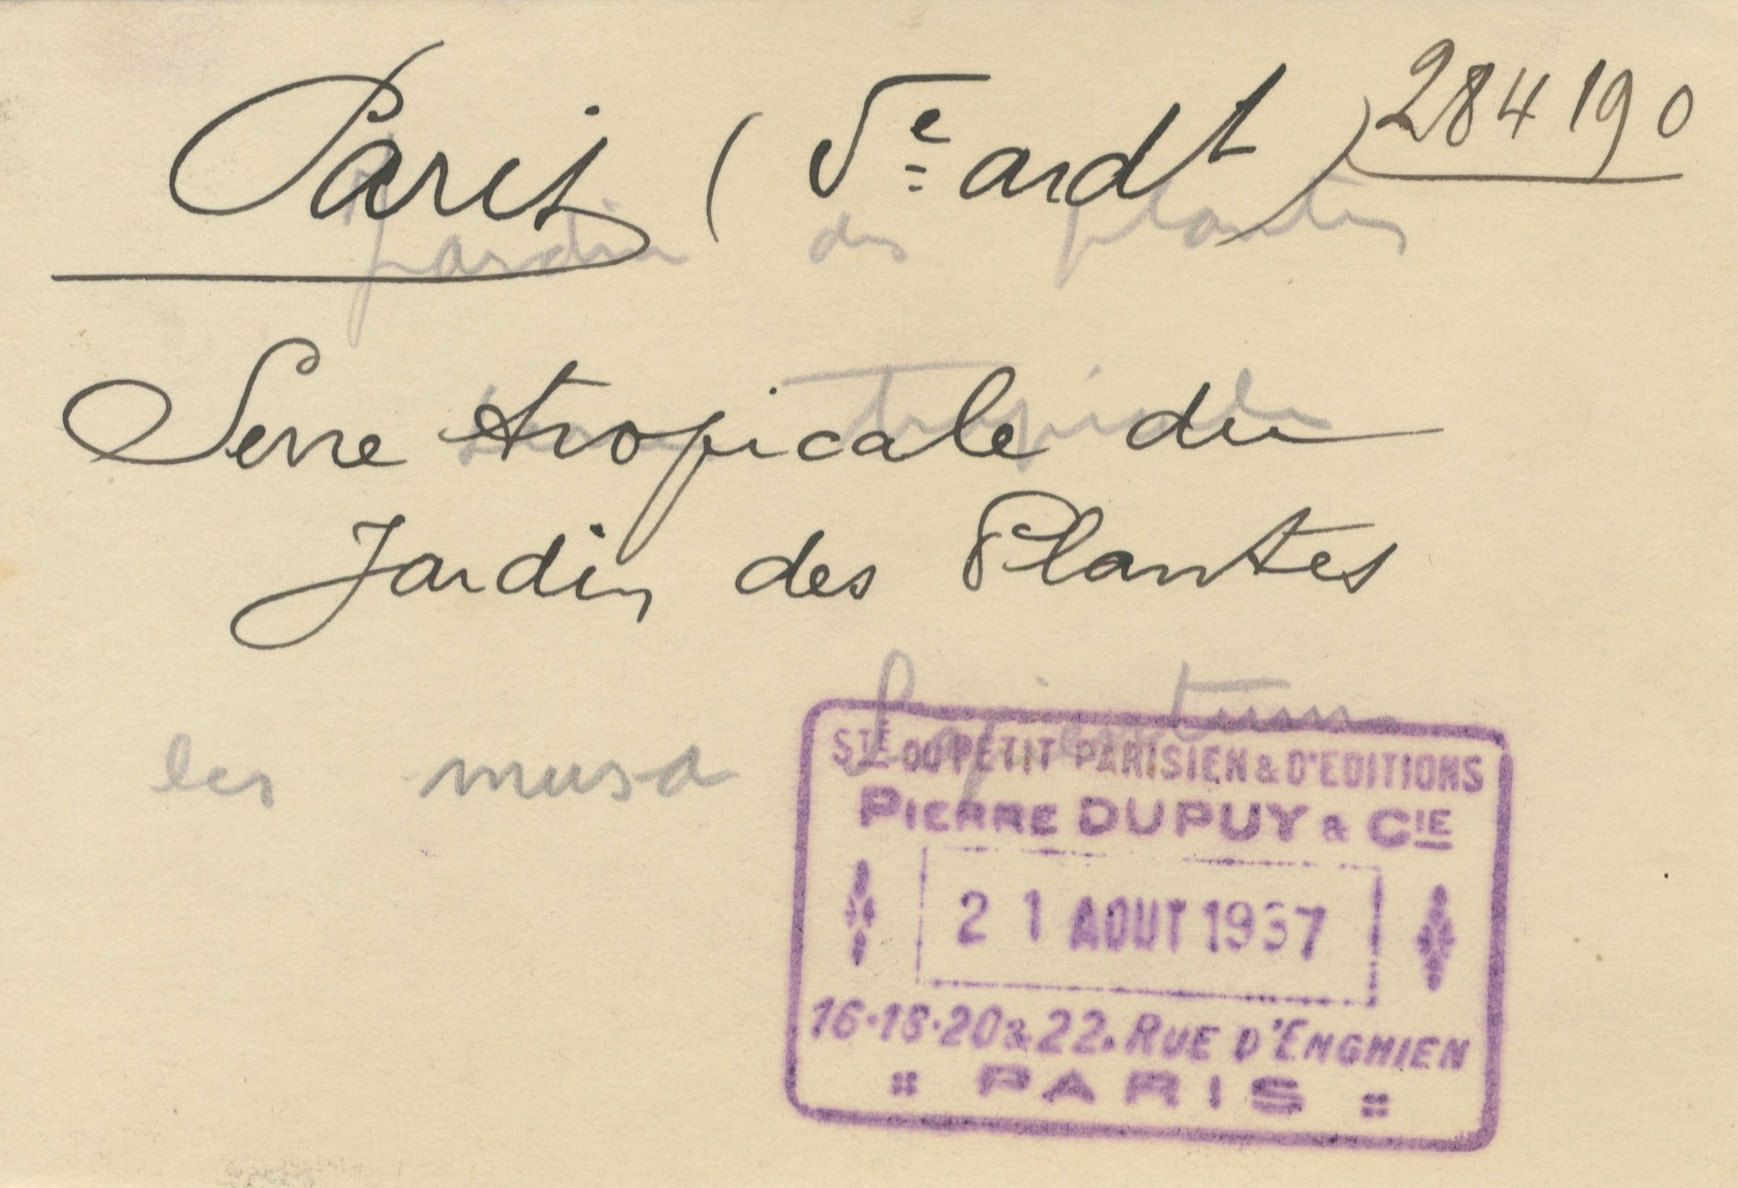 Paris (Ve ardt) 284190
Jardin des plantes
Serre tropicale du
Serre tropicale
Jardin des Plantes
les musa
STÉ DU PETIT PARISIEN & D'EDITIONS
PIERRE DUPUY & CIE
21 AOUT 1937
16·18·20 & 22. RUE D'ENGHIEN
PARIS